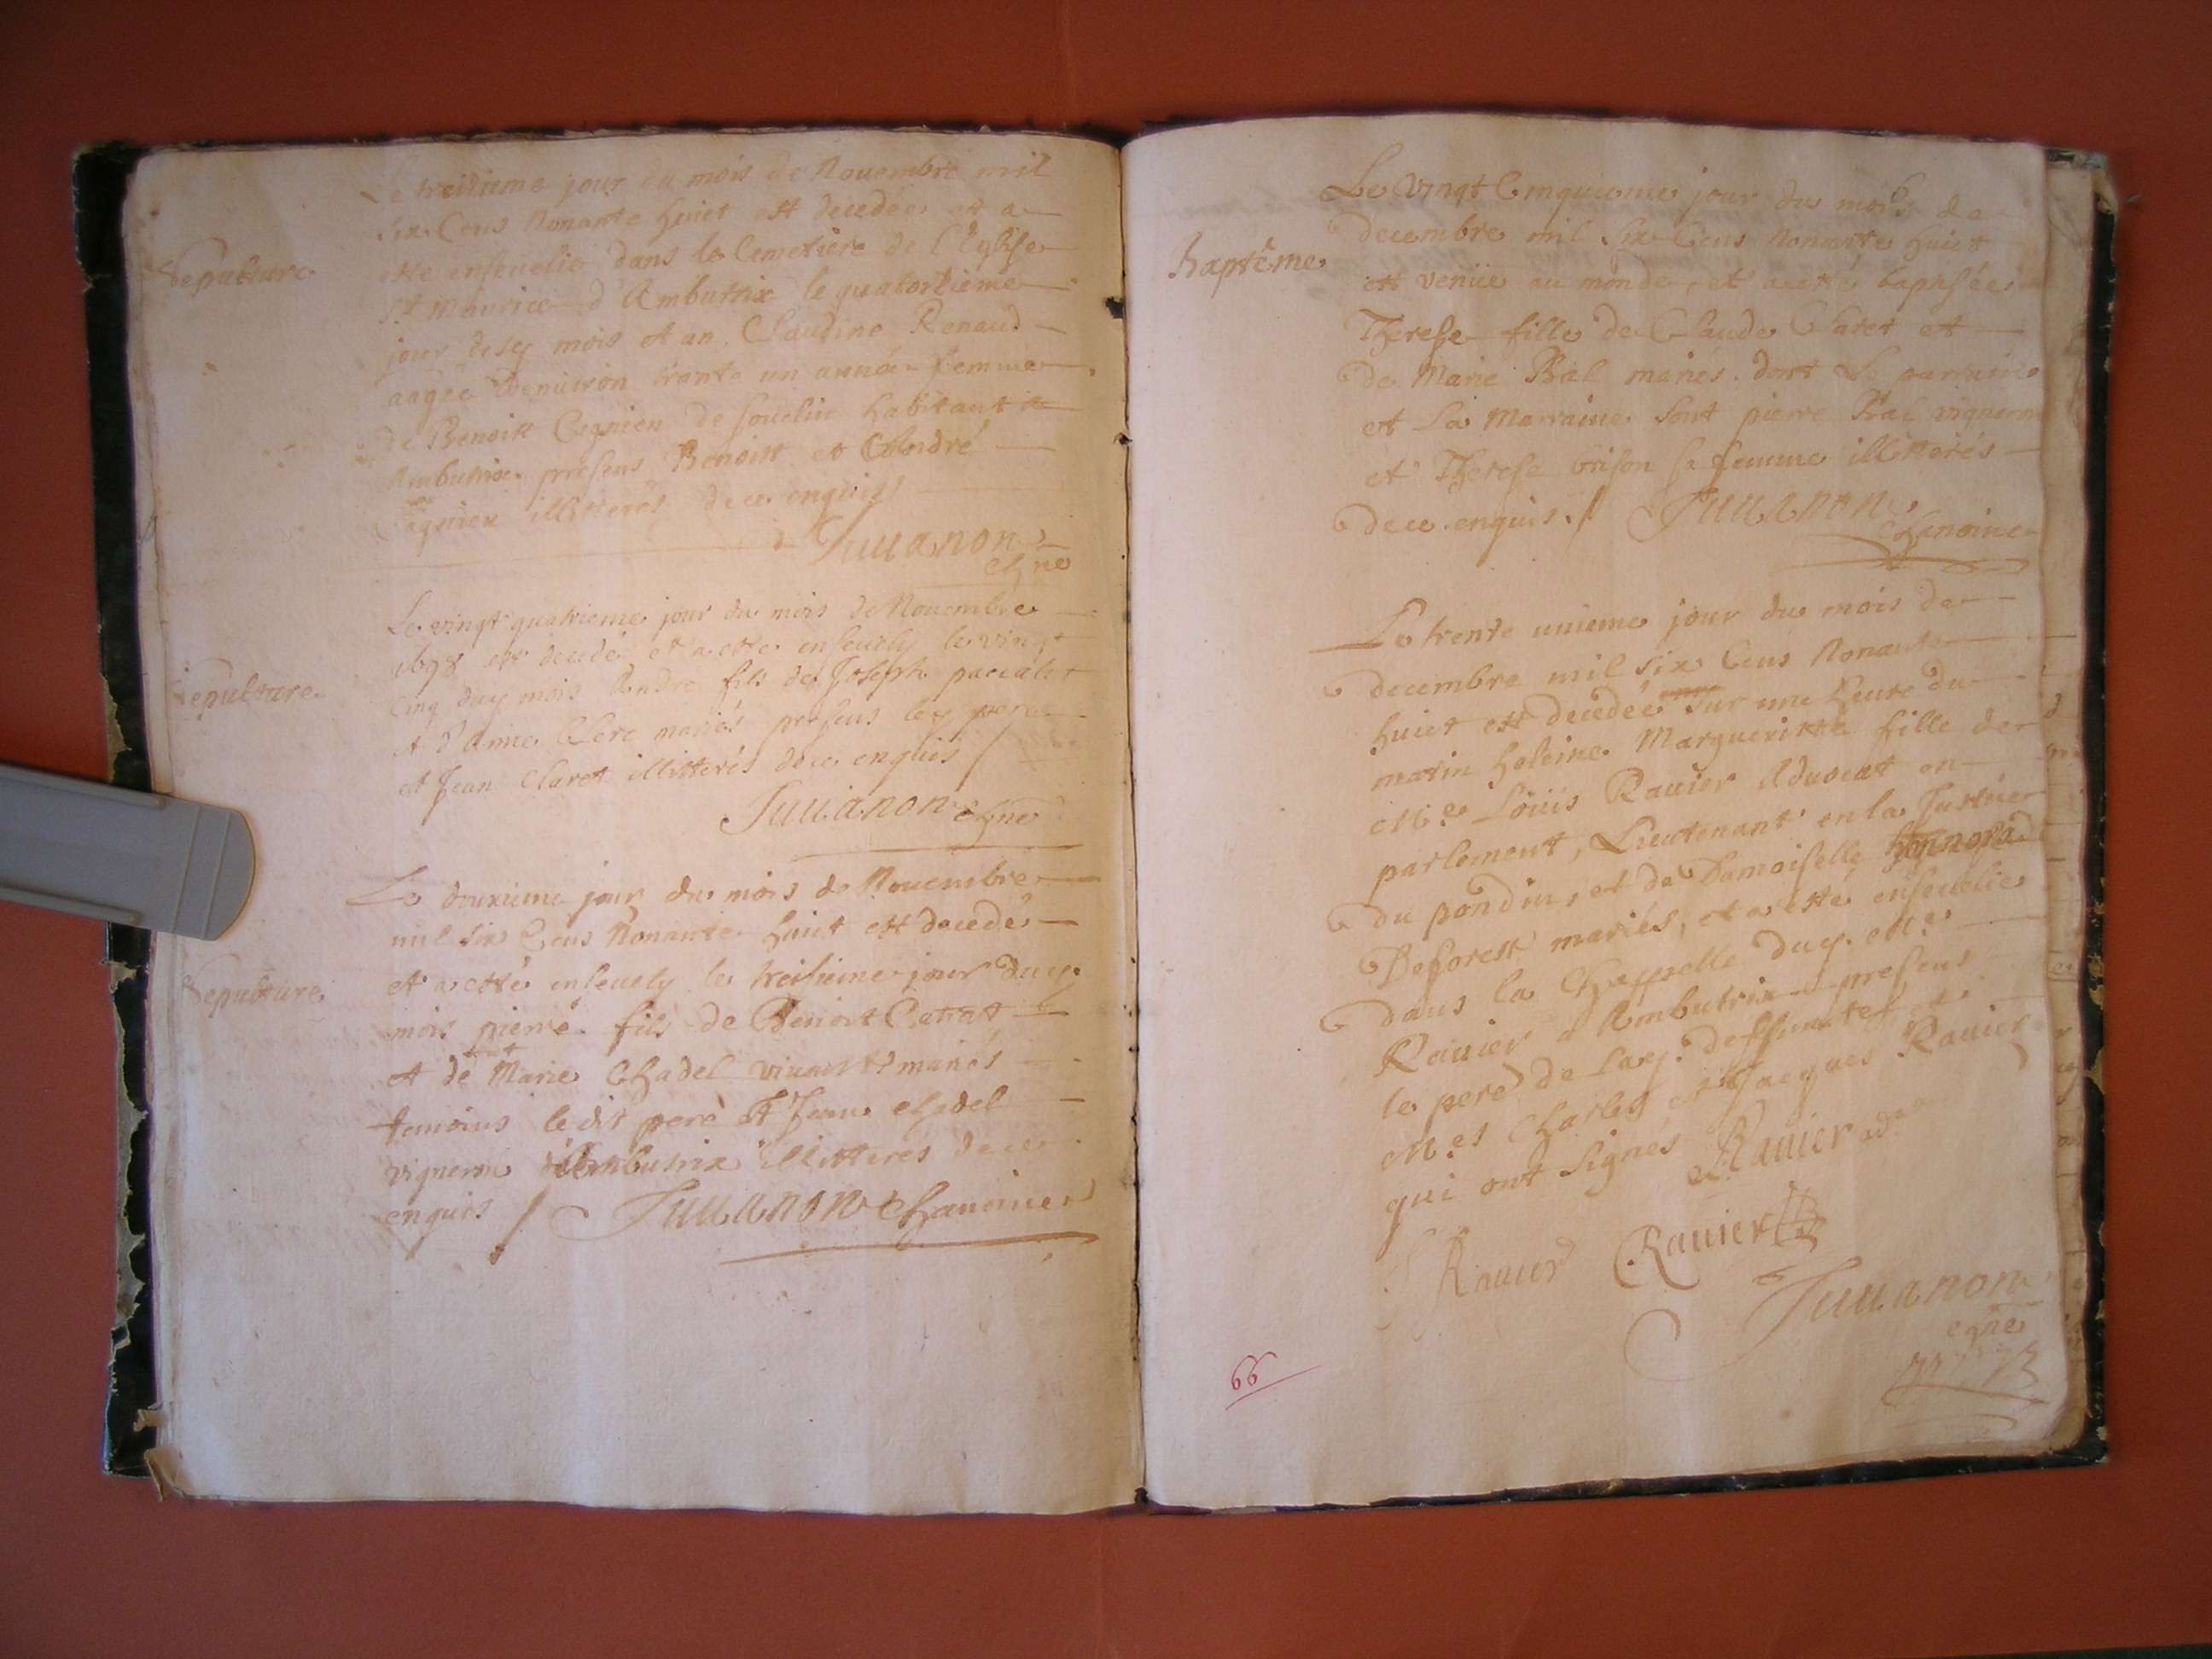 Sepulture
Le treisieme jour du mois de Nouembre mil
six Cens Nonante huict est decedée et a
esté enseuelie dans le Cemetiere de l'Eglise
St Maurice d'Ambutrix le quatorsieme
jour desq mois et an Claudine Renaud
aagée d'enuiron trante un année femme
de Benoist Cagnien de souclin habitant a
Ambutrix presens Benoist et André
Cagnien illitterés de ce enquis
Juuanon
chne
Sepulture
Le vingt quatrieme jour du mois de Nouembre
1698 est decedé et a esté enseuely le vingt
Cinq duq mois Andre fils de Joseph paccalet
et d'Anne Clerc mariés presens leq pere
et Jean Claret illitterés de ce enquis /
Juuanon chne
Sepulture
Le douxieme jour du mois de Nouembre
mil six Cens Nonante huict est decedé
et a esté enseuely le treisieme jour duq
mois pierre fils de Benoit
et de Marie Chadel viuant mariés
temoins ledit pere et Jean chadel
vigneron d'Ambutrix illitterés de ce
enquis / Juuanon Chanoine
6
Baptême
Le vingt Cinquieme jour du mois de
decembre mil six Cens Nonante huict
est venüe au monde, et a esté baptisée
Therese fille de Claude Claret et
de Marie Bal mariés dont le parrain
et la Marraine sont pierre Bal vigneron
et Therese brison sa femme illitterés
de ce enquis. / Juuanon
Chanoine
Le trente unieme jour du mois de
decembre mil six Cens Nonante
huict est decedée sur une heure du
matin heleine Margueritte fille de
Me Löuis Rauier Aduocat en
parlement, Lieutenant en la Justice
du pondin, et de Damoiselle honnora
Deforest mariés, et a esté enseuelie
dans la Chappelle duq. Me
Rauier a Ambutrix presens
le pere de laq. deffuncte et
Mes Charles et Jacques Rauier
qui ont signés Rauier
Rauier Rauier
Juuanon
chne
66